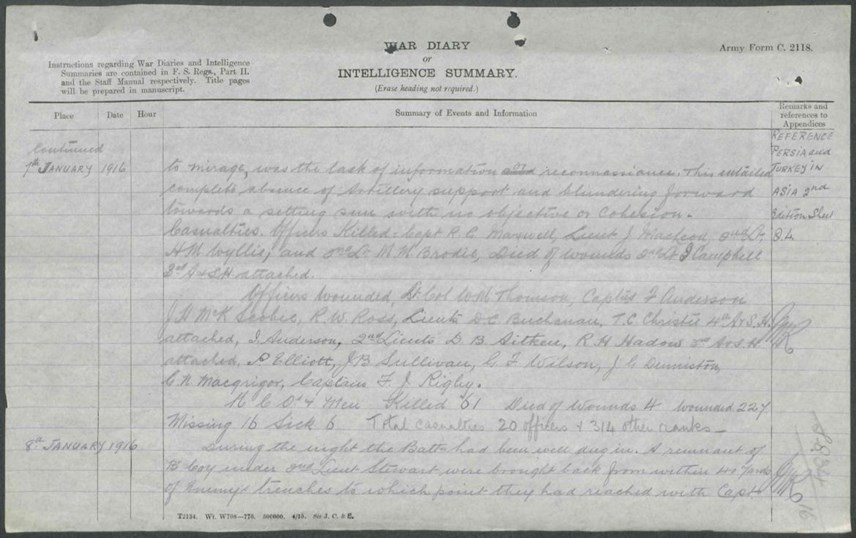 WAR DIARY
or
INTELLIGENCE SUMMARY.
(Erase heading not required.)
Army Form C. 2118.
Instructions regarding War Diaries and Intelligence
Summaries are contained in F. S. Regs., Part II.
and the Staff Manual respectively. Title pages
will be prepared in manuscript.
Place Date Hour Summary of Events and Information Remarks and
references to
Appendices
Continued
7th JANUARY 1916
to mirage, was the lack of information or reconnaissance. This entailed
complete absence of Artillery support and blundering forward
towards a setting sun with no objective or Cohesion.
Casualties. Officers Killed: Capt R. C. Maxwell, Lieut J. Macleod, 2nd Lt
H M Wyllie, and 2nd Lt M. M. Brodie, Died of wounds 2nd Lt J Campbell
3rd A & S H attached.
REFERENCE
PERSIA and
TURKEY in
ASIA 2nd
Edition Sheet
Officers Wounded, Lt Col W M Thomson, Capts F Anderson
J. H McK Scobie, R. W Ross, Lieuts D C Buchanan, T. C. Christie 4th A & S. H.
attached, J. Anderson, 2nd Lieuts D. B. Aitken, R. H Hadow A & S. H
attached, P Elliott, J. B Sullivan, C. F Wilson, J. C Denniston,
C. N Macgrigor, Captain F J. Rigby.
N C O's & Men Killed 51 Died of Wounds 4 wounded 227
Missing 16 Sick 6 Total casualties 20 officers & 314 other ranks
8th JANUARY 1916
During the night the Battn had been well dug in. A remnant of
B Coy under 2nd Lieut Stewart were brought back from within 40 yards
of Enemy trenches to which point they had reached with Capt
T2134. Wt. W708—776. 500000. 4/15. Sir J. C. & S.